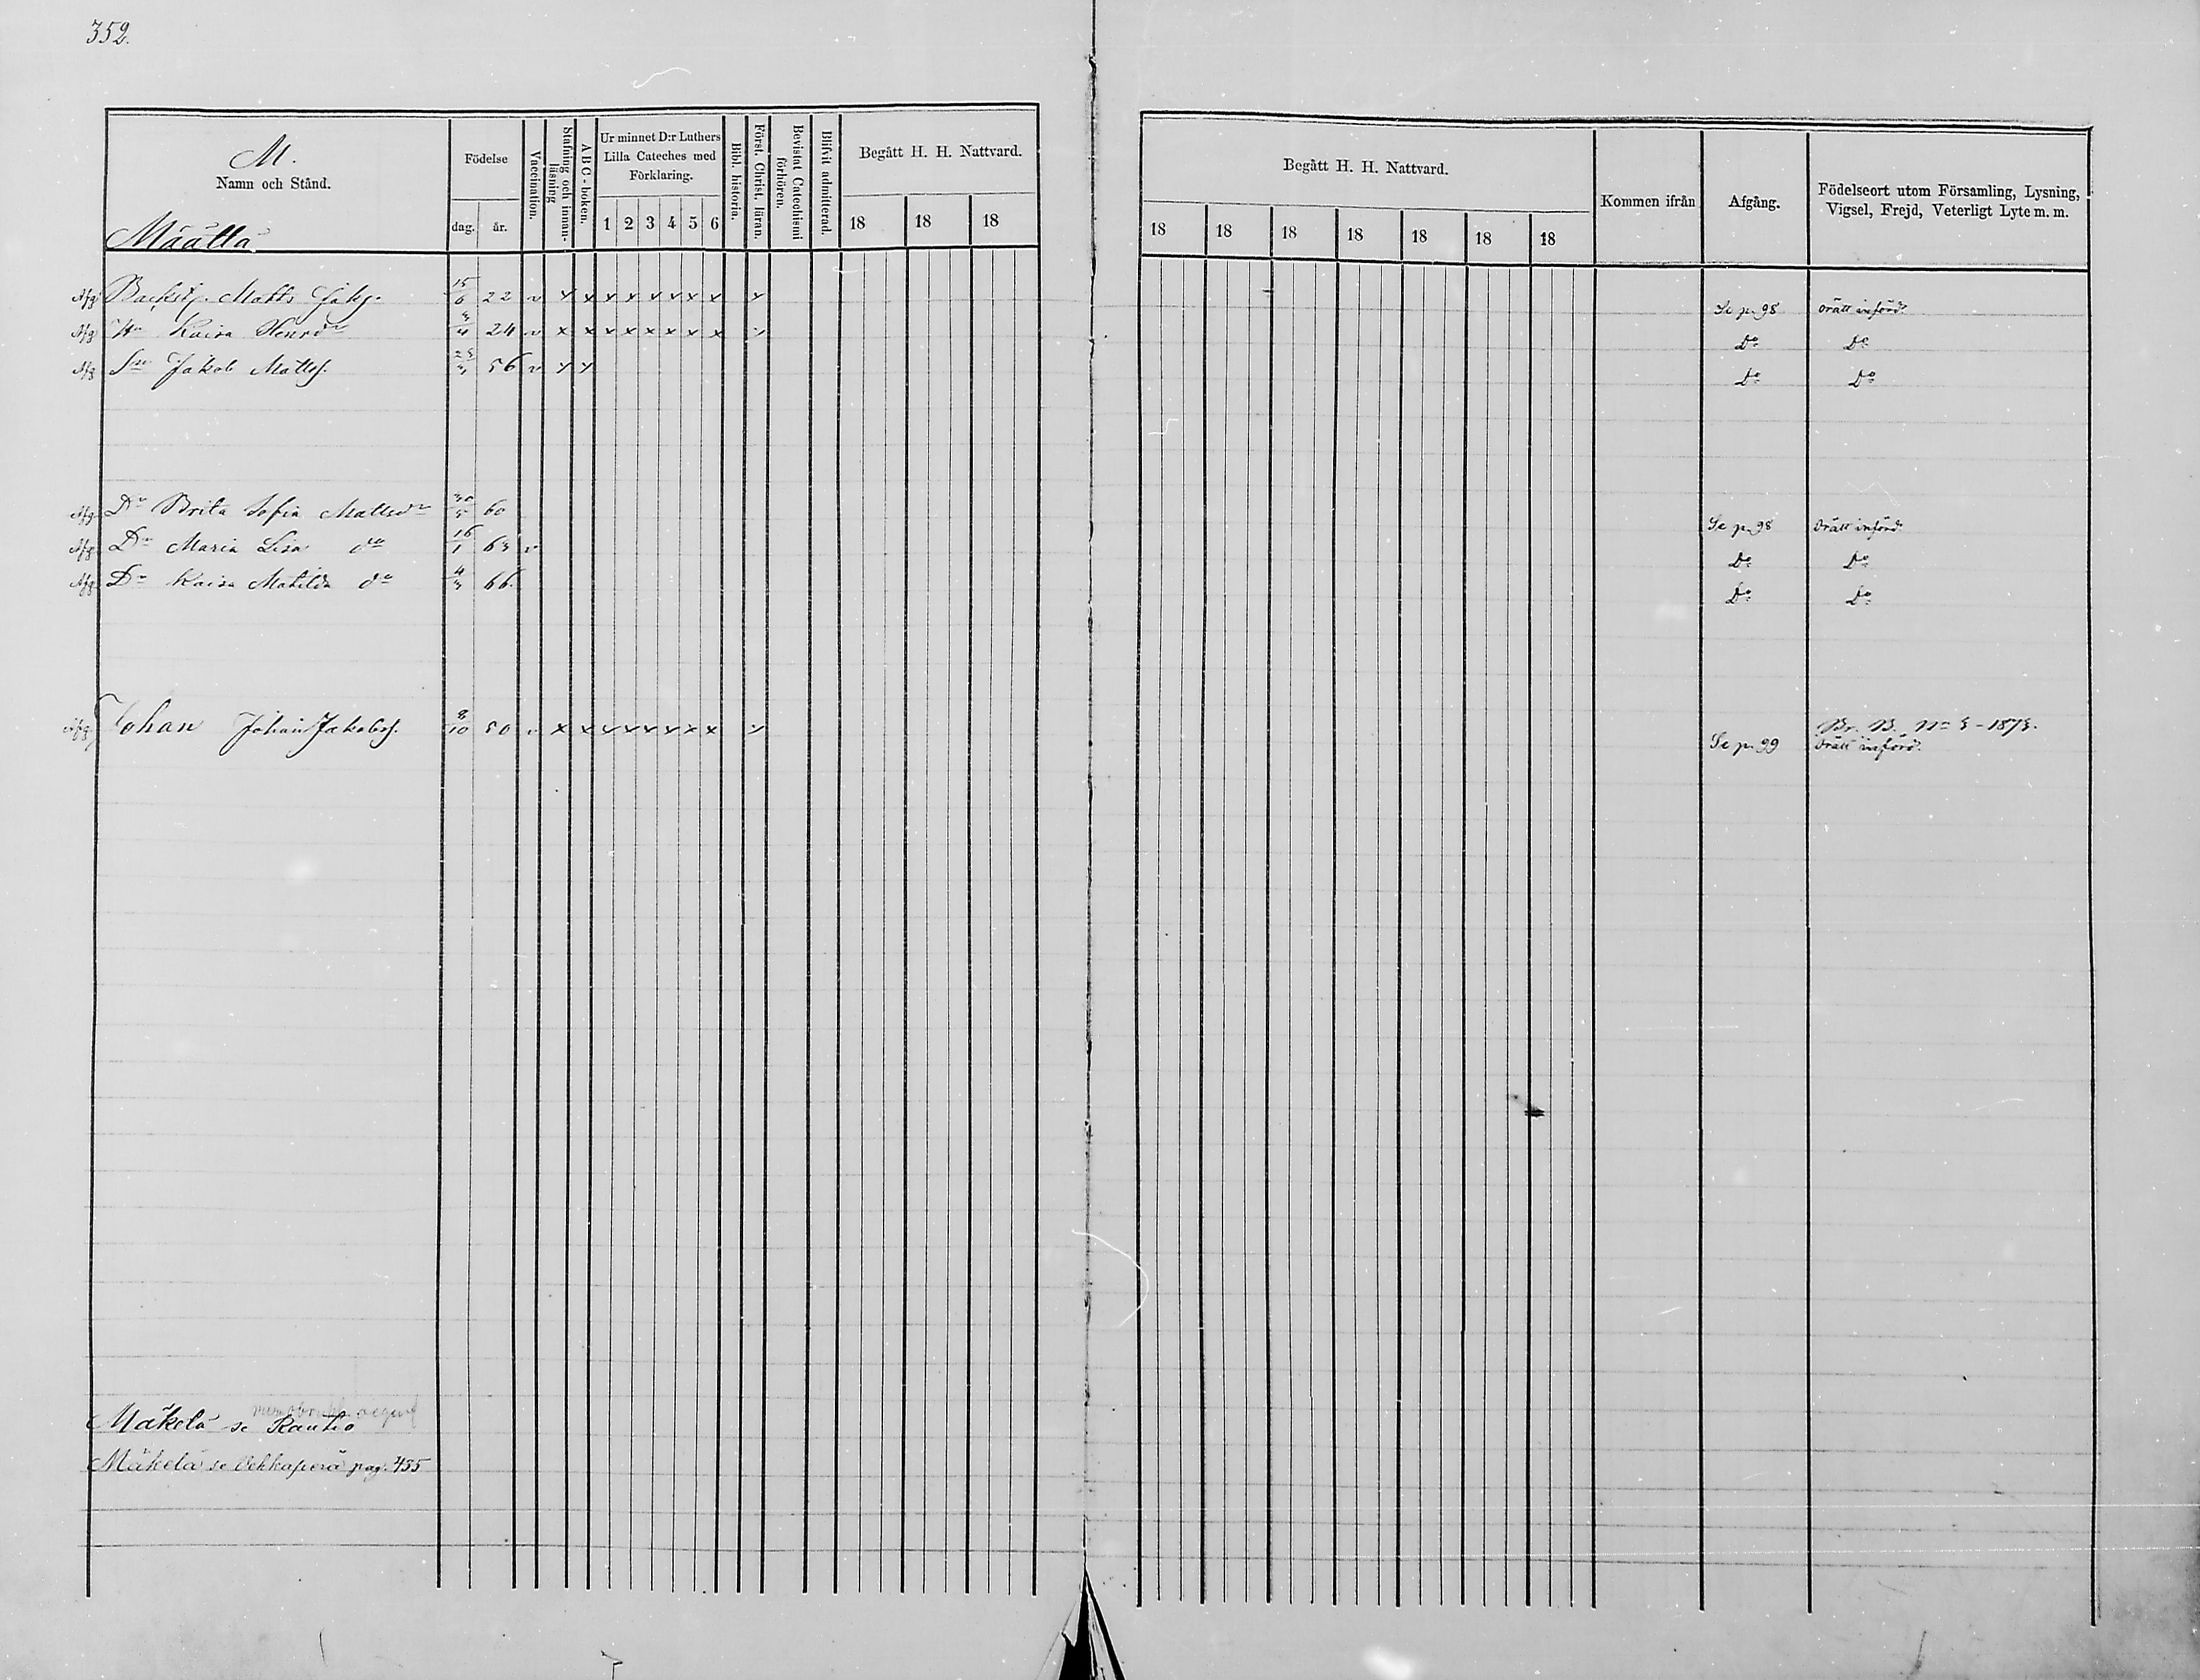 352.
M.
Namn och Stånd.
Määttä
Födelse
dag. år.
Vaccination.
Stafning och innanläsning
ABC-boken.
Ur minnet D:r Luthers Lilla Cateches med Förklaring.
1 2 3 4 5 6
Bibl. historia.
Först. Christ. läran.
Bevistat Catechismi förhören.
Blifvit admitterad.
Begått H. H. Nattvard.
18 18 18
Begått H. H. Nattvard.
18 18 18 18 18 18 18
Kommen ifrån
Afgång.
Födelseort utom Församling, Lysning, Vigsel, Frejd, Veterligt Lyte m. m.
Afg. Matts Jakj. 15/6 22 v x x x x x x x x x Se p. 98 orätt införd.
Afg Hu Kaisa Henrdr 3/4 24 v x x x x x x x x x Do Do
Afg Sn Jakob Mattsj. 25/3 56 v x x Do Do
Afg. Dr Brita Sofia Mattsdr 30/5 60 Se p. 98 Orätt införd
Afg Dr Maria Lisa do 16/1 63 v Do Do
Afg Dr Kaisa Matilda do 4/3 66. Do Do
Afg. Johan Johan Jakobsj. 8/10 50 v x x x x x x x x x Se p. 99 Br. B. No 5-1873.
Orätt införd.
Mäkelä se Rautio
Mäkelä se Vehkaperä pag. 455